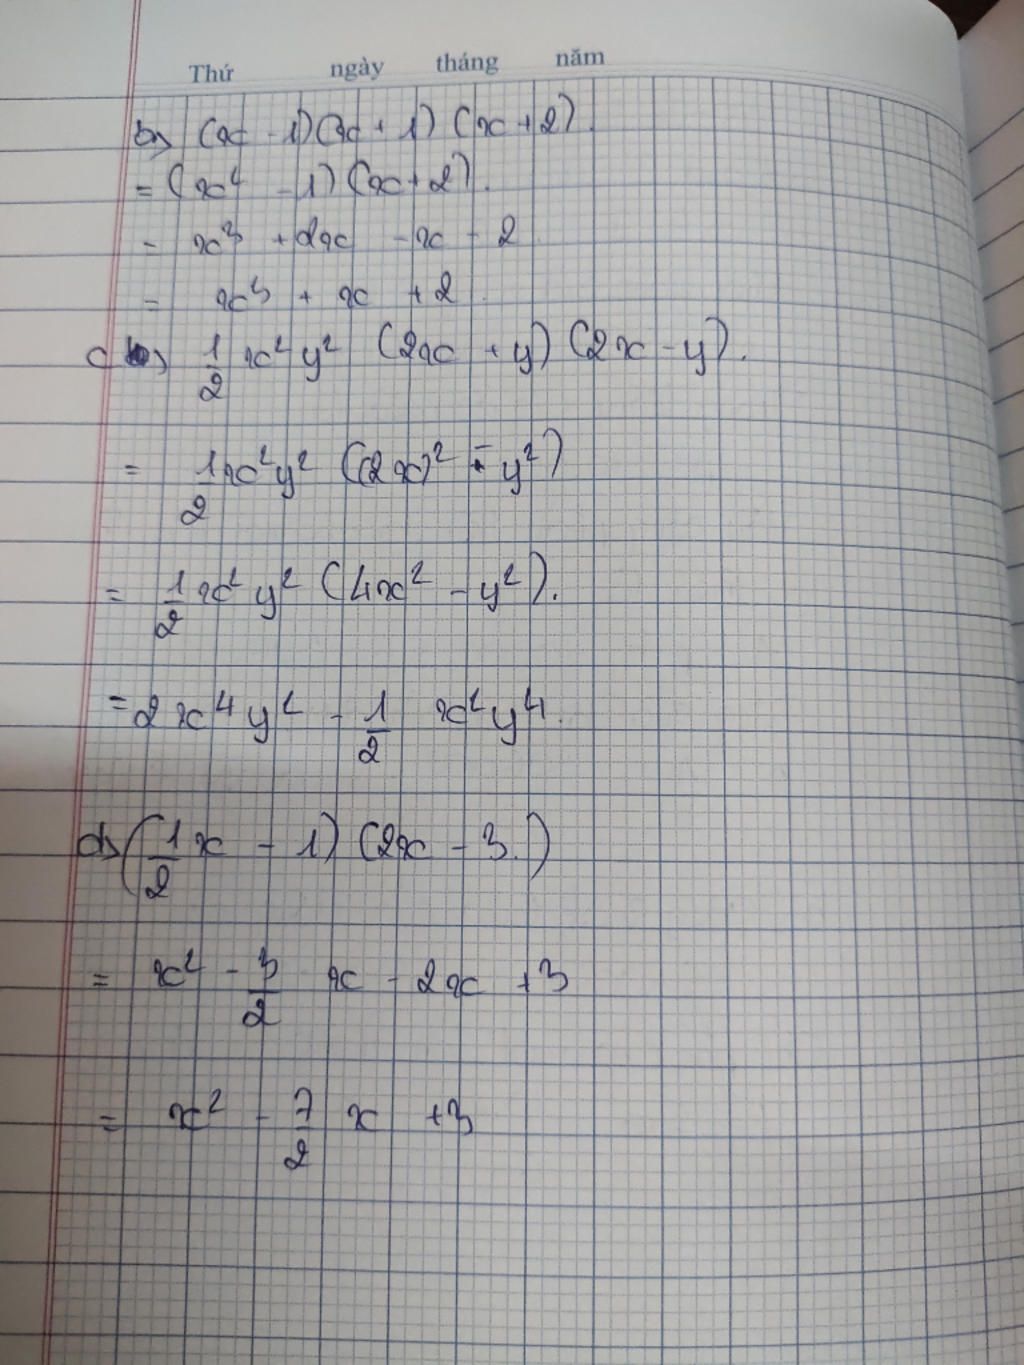 Thứ ngày tháng năm
b) (x - 1)(x + 1) (x + 2).
= (x² - 1) (x + 2).
= x³ + 2x - x - 2
= x³ + x + 2.
c) 1/2 x² y² (2x + y) (2x - y).
= 1/2 x² y² ((2x)² - y²)
= 1/2 x² y² (4x² - y²).
= 2x⁴y² - 1/2 x² y⁴.
d) (1/2 x - 1) (2x - 3.)
= x² - 3/2 x - 2x + 3
= x² - 7/2 x + 3